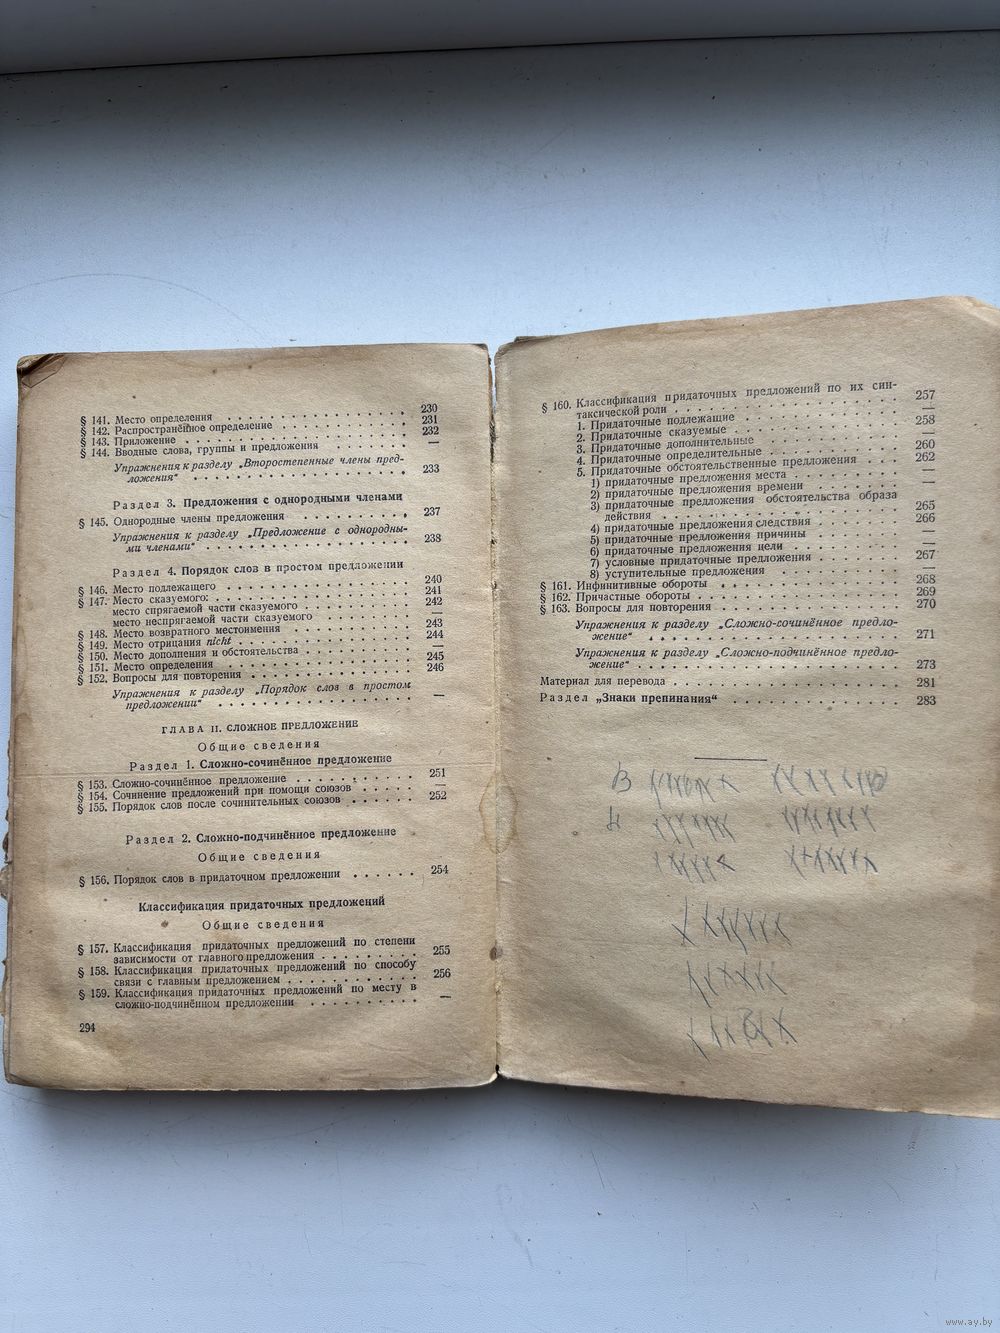 § 141. Место определения . . . . . . . . . . . . . . . . 230
§ 142. Распространённое определение . . . . . . . . . . 231
§ 143. Приложение . . . . . . . . . . . . . . . . . . . 232
§ 144. Вводные слова, группы и предложения . . . . . . . —
Упражнения к разделу „Второстепенные члены пред-
ложения“ . . . . . . . . . . . . . . . . . . 233
Раздел 3. Предложения с однородными членами
§ 145. Однородные члены предложения . . . . . . . . . . 237
Упражнения к разделу „Предложение с однородны-
ми членами“ . . . . . . . . . . . . . . . . . 238
Раздел 4. Порядок слов в простом предложении
§ 146. Место подлежащего . . . . . . . . . . . . . . . 240
§ 147. Место сказуемого: . . . . . . . . . . . . . . . 241
место спрягаемой части сказуемого . . . . . . . . 242
место неспрягаемой части сказуемого . . . . . . . —
§ 148. Место возвратного местоимения . . . . . . . . . 243
§ 149. Место отрицания nicht . . . . . . . . . . . . . 244
§ 150. Место дополнения и обстоятельства . . . . . . . . —
§ 151. Место определения . . . . . . . . . . . . . . . 245
§ 152. Вопросы для повторения . . . . . . . . . . . . . 246
Упражнения к разделу „Порядок слов в простом
предложении“ . . . . . . . . . . . . . . . . . —
ГЛАВА II. СЛОЖНОЕ ПРЕДЛОЖЕНИЕ
Общие сведения
Раздел 1. Сложно-сочинённое предложение
§ 153. Сложно-сочинённое предложение . . . . . . . . . 251
§ 154. Сочинение предложений при помощи союзов . . . . .
§ 155. Порядок слов после сочинительных союзов . . . . . 252
Раздел 2. Сложно-подчинённое предложение
Общие сведения
§ 156. Порядок слов в придаточном предложении . . . . . 254
Классификация придаточных предложений
Общие сведения
§ 157. Классификация придаточных предложений по степени
зависимости от главного предложения . . . . . . . . 255
§ 158. Классификация придаточных предложений по способу
связи с главным предложением . . . . . . . . . . . 256
§ 159. Классификация придаточных предложений по месту в
сложно-подчинённом предложении . . . . . . . . . . —
294
§ 160. Классификация придаточных предложений по их син-
таксической роли . . . . . . . . . . . . . . . . 257
1. Придаточные подлежащие . . . . . . . . . . . . —
2. Придаточные сказуемые . . . . . . . . . . . . 258
3. Придаточные дополнительные . . . . . . . . . . —
4. Придаточные определительные . . . . . . . . . 260
5. Придаточные обстоятельственные предложения . . . 262
1) придаточные предложения места . . . . . . . . —
2) придаточные предложения времени . . . . . . . —
3) придаточные предложения обстоятельства образа
действия . . . . . . . . . . . . . . . . . 265
4) придаточные предложения следствия . . . . . . 266
5) придаточные предложения причины . . . . . . . —
6) придаточные предложения цели . . . . . . . . —
7) условные придаточные предложения . . . . . . 267
8) уступительные предложения . . . . . . . . . . —
§ 161. Инфинитивные обороты . . . . . . . . . . . . . 268
§ 162. Причастные обороты . . . . . . . . . . . . . . 269
§ 163. Вопросы для повторения . . . . . . . . . . . . 270
Упражнения к разделу „Сложно-сочинённое предло-
жение“ . . . . . . . . . . . . . . . . . . . 271
Упражнения к разделу „Сложно-подчинённое предло-
жение“ . . . . . . . . . . . . . . . . . . . 273
Материал для перевода . . . . . . . . . . . . . . . 281
Раздел „Знаки препинания“ . . . . . . . . . . . . . 283
www.ay.by